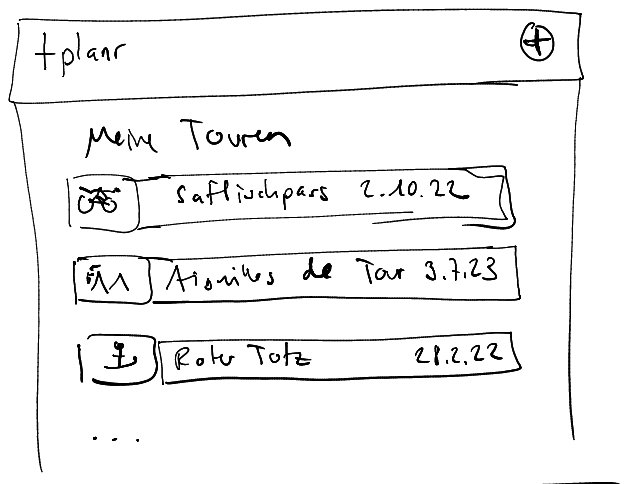 tplanr
Meine Touren
Saflischpass 2.10.22
de Tour 3.7.23
Roter Totz 28.2.22
...